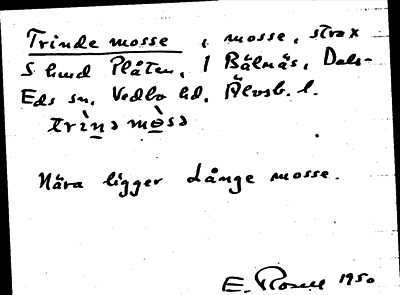 Trinde mosse, mosse, strax
S hmd Plåten, 1 Bälnäs, Dals-
Eds sn, Vedbo hd, Älvsb. l.
trìnə mòsə
Nära ligger Långe mosse.
E. Rosell 1950